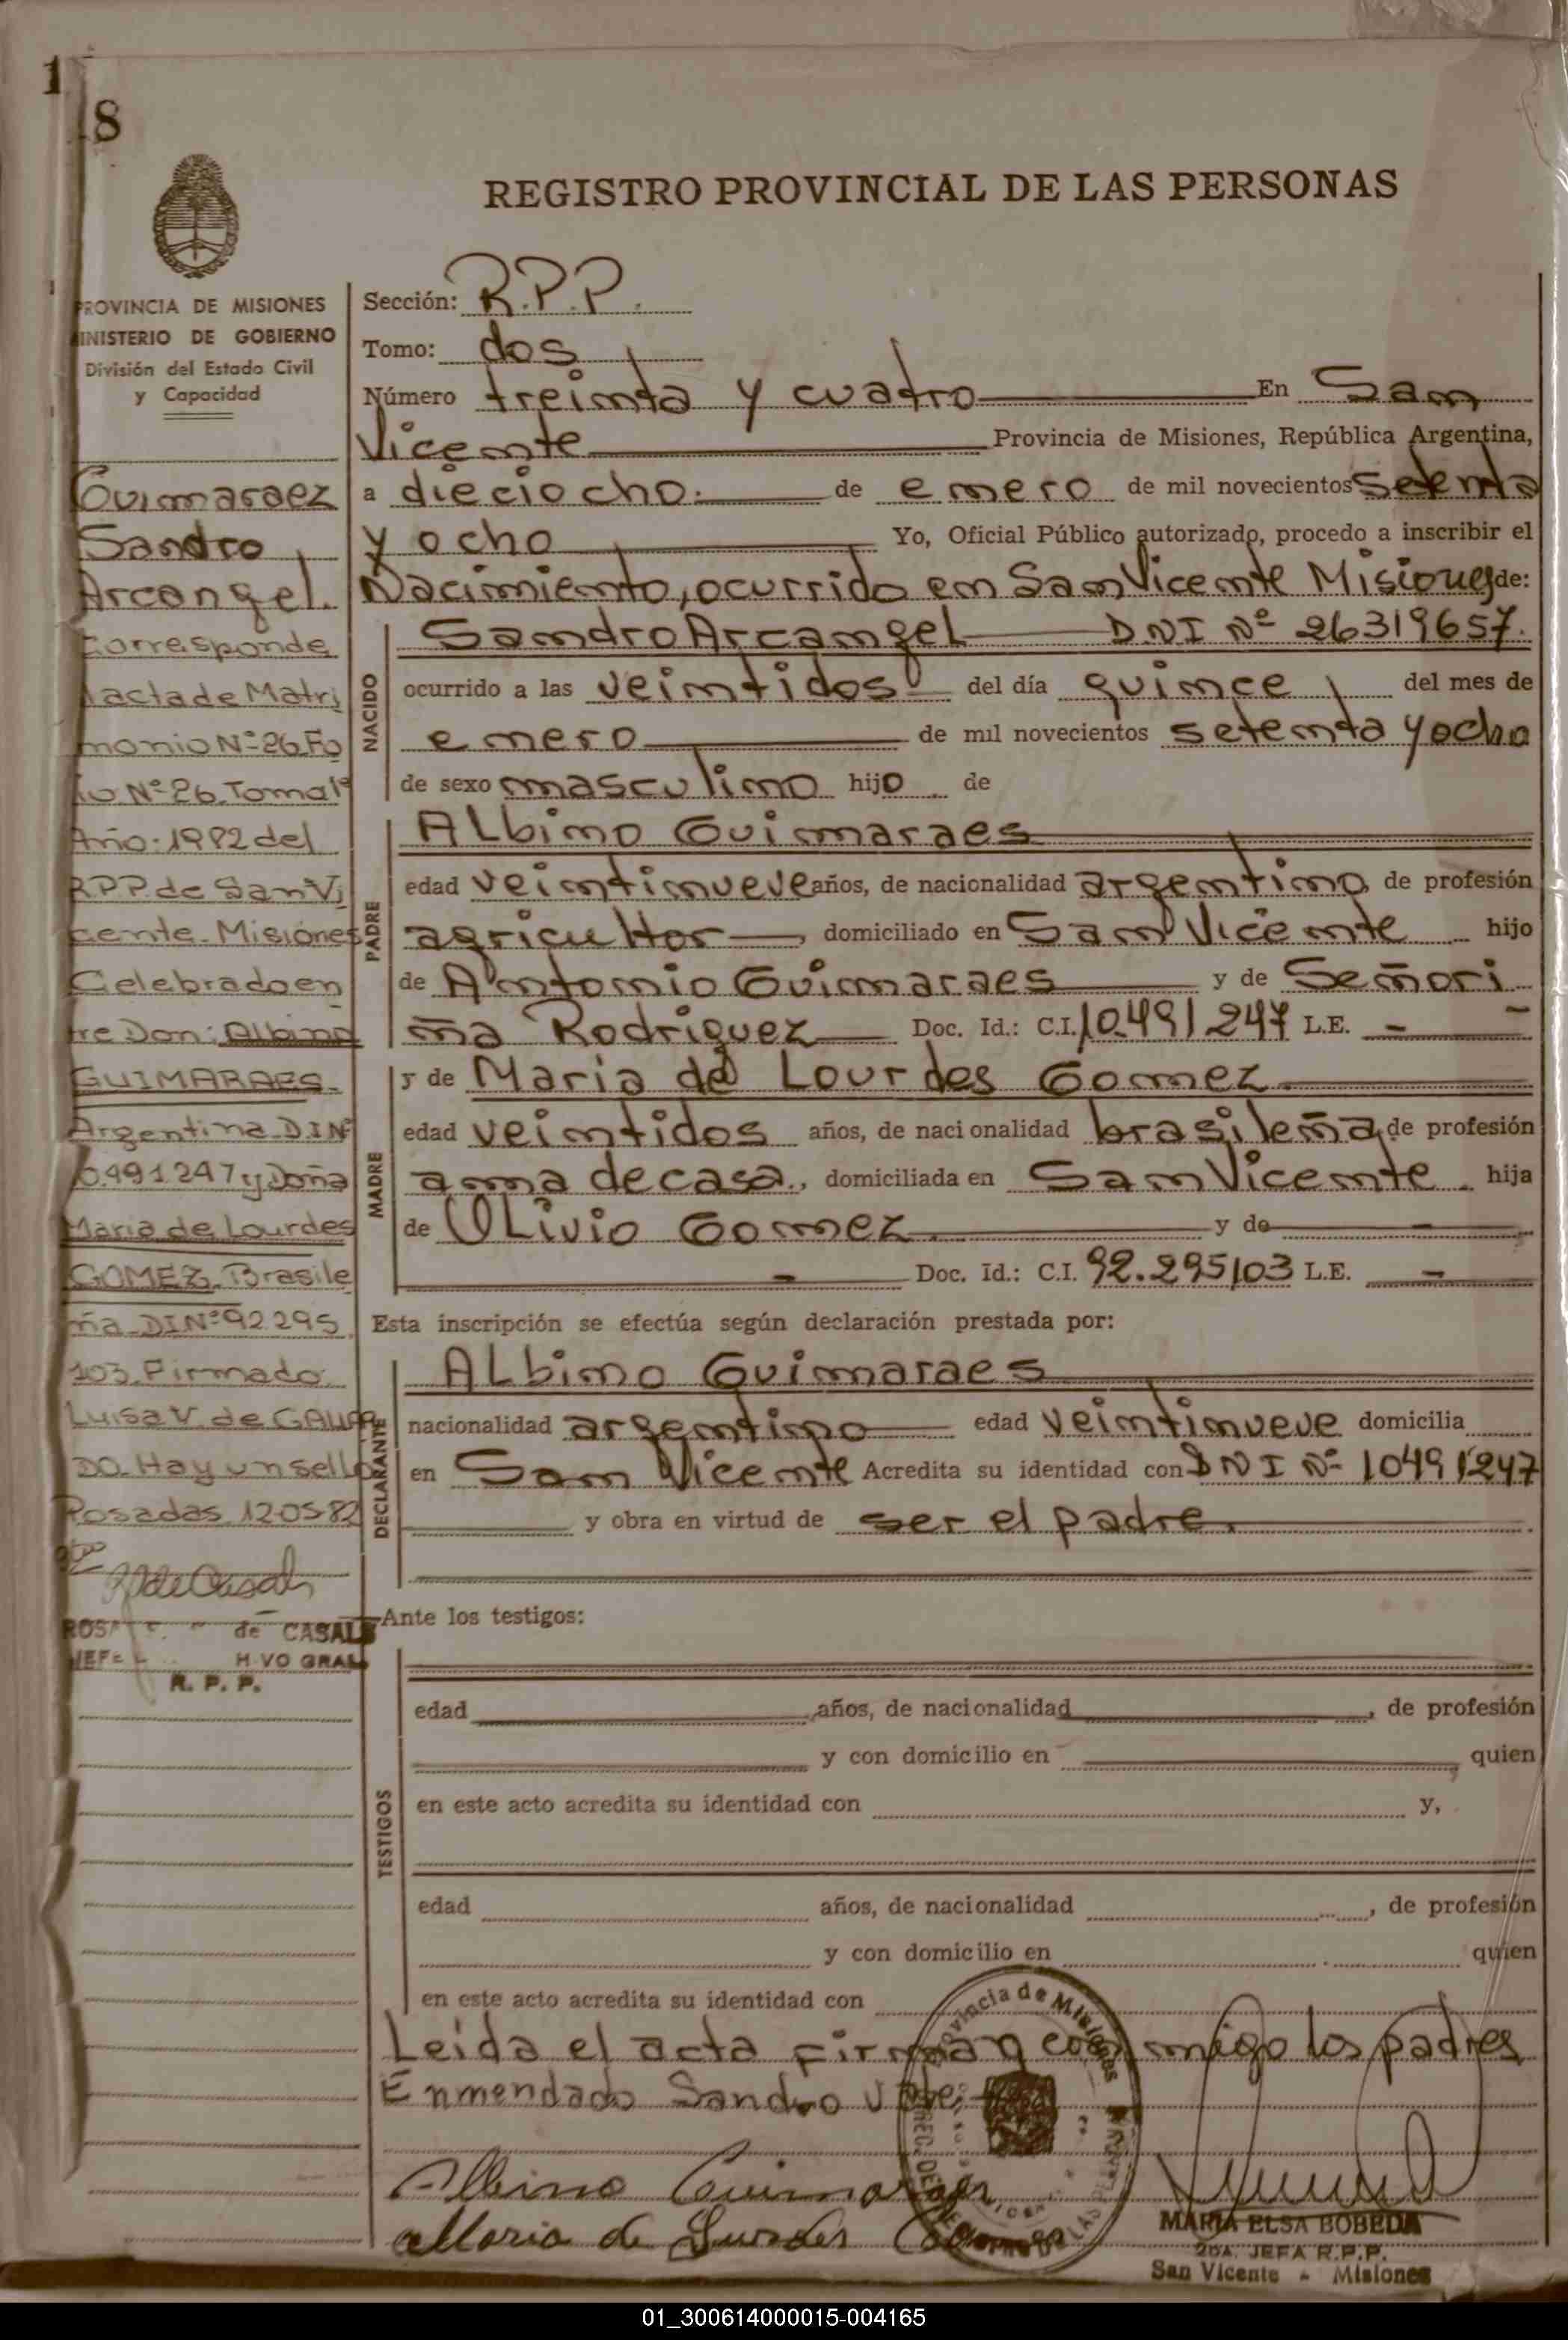 1
8
REGISTRO PROVINCIAL DE LAS PERSONAS
PROVINCIA DE MISIONES
MINISTERIO DE GOBIERNO
División del Estado Civil
y Capacidad
Guimaraez
Sandro
Arcangel.
Corresponde
acta de Matri
monio Nº 26 Fo
io Nº 26. Tomo 1º
Año: 1982 del
R.P.P. de San Vi
cente - Misiones
Celebrado en
tre Don: Albino
GUIMARAES.
Argentina D.I Nº
10.491247 y Doña
Maria de Lourdes
GOMEZ. Brasile
ña DI Nº 92 295
103. Firmado
Luisa V. de GALUA
DO. Hay un sello
Posadas 12-05-82
de CASALS
GRAL
R. P. P.
Sección: R.P.P.
Tomo: dos
Número treinta y cuatro En San
Vicente Provincia de Misiones, República Argentina,
a dieciocho. de enero de mil novecientos setenta
y ocho Yo, Oficial Público autorizado, procedo a inscribir el
Nacimiento, ocurrido en San Vicente Misiones de:
NACIDO
Sandro Arcangel DNI Nº 26319657.
ocurrido a las veintidos del día quince del mes de
enero de mil novecientos setenta y ocho
de sexo masculino hijo de
PADRE
Albino Guimaraes
edad veintinueve años, de nacionalidad argentino, de profesión
agricultor, domiciliado en San Vicente hijo
de Antonio Guimaraes y de Señori
ña Rodriguez Doc. Id.: C.I. 10.491247 L.E. -
MADRE
y de Maria de Lourdes Gomez
edad veintidos años, de nacionalidad brasileña, de profesión
ama de casa, domiciliada en San Vicente. hija
de Olivio Gomez y de -
- Doc. Id.: C.I. 92.295103 L.E. -
Esta inscripción se efectúa según declaración prestada por:
DECLARANTE
Albino Guimaraes
nacionalidad argentino edad veintinueve domicilia
en San Vicente Acredita su identidad con DNI Nº 10491247
y obra en virtud de ser el padre.
Ante los testigos:
TESTIGOS
edad años, de nacionalidad, de profesión
y con domicilio en, quien
en este acto acredita su identidad con y,
edad años, de nacionalidad, de profesión
y con domicilio en quien
en este acto acredita su identidad con
Leida el acta firman conmigo los padres
Enmendado Sandro Vale.
Provincia de Misiones
Albino Guimaraes
Maria de Lurdes
MARIA ELSA BOBEDA
2DA. JEFA R.P.P.
San Vicente - Misiones
01_300614000015-004165